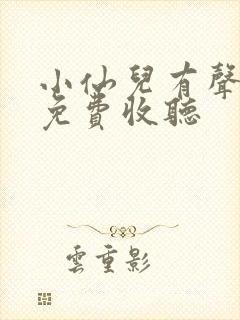 小仙兒有聲
免費收聽
雲重影